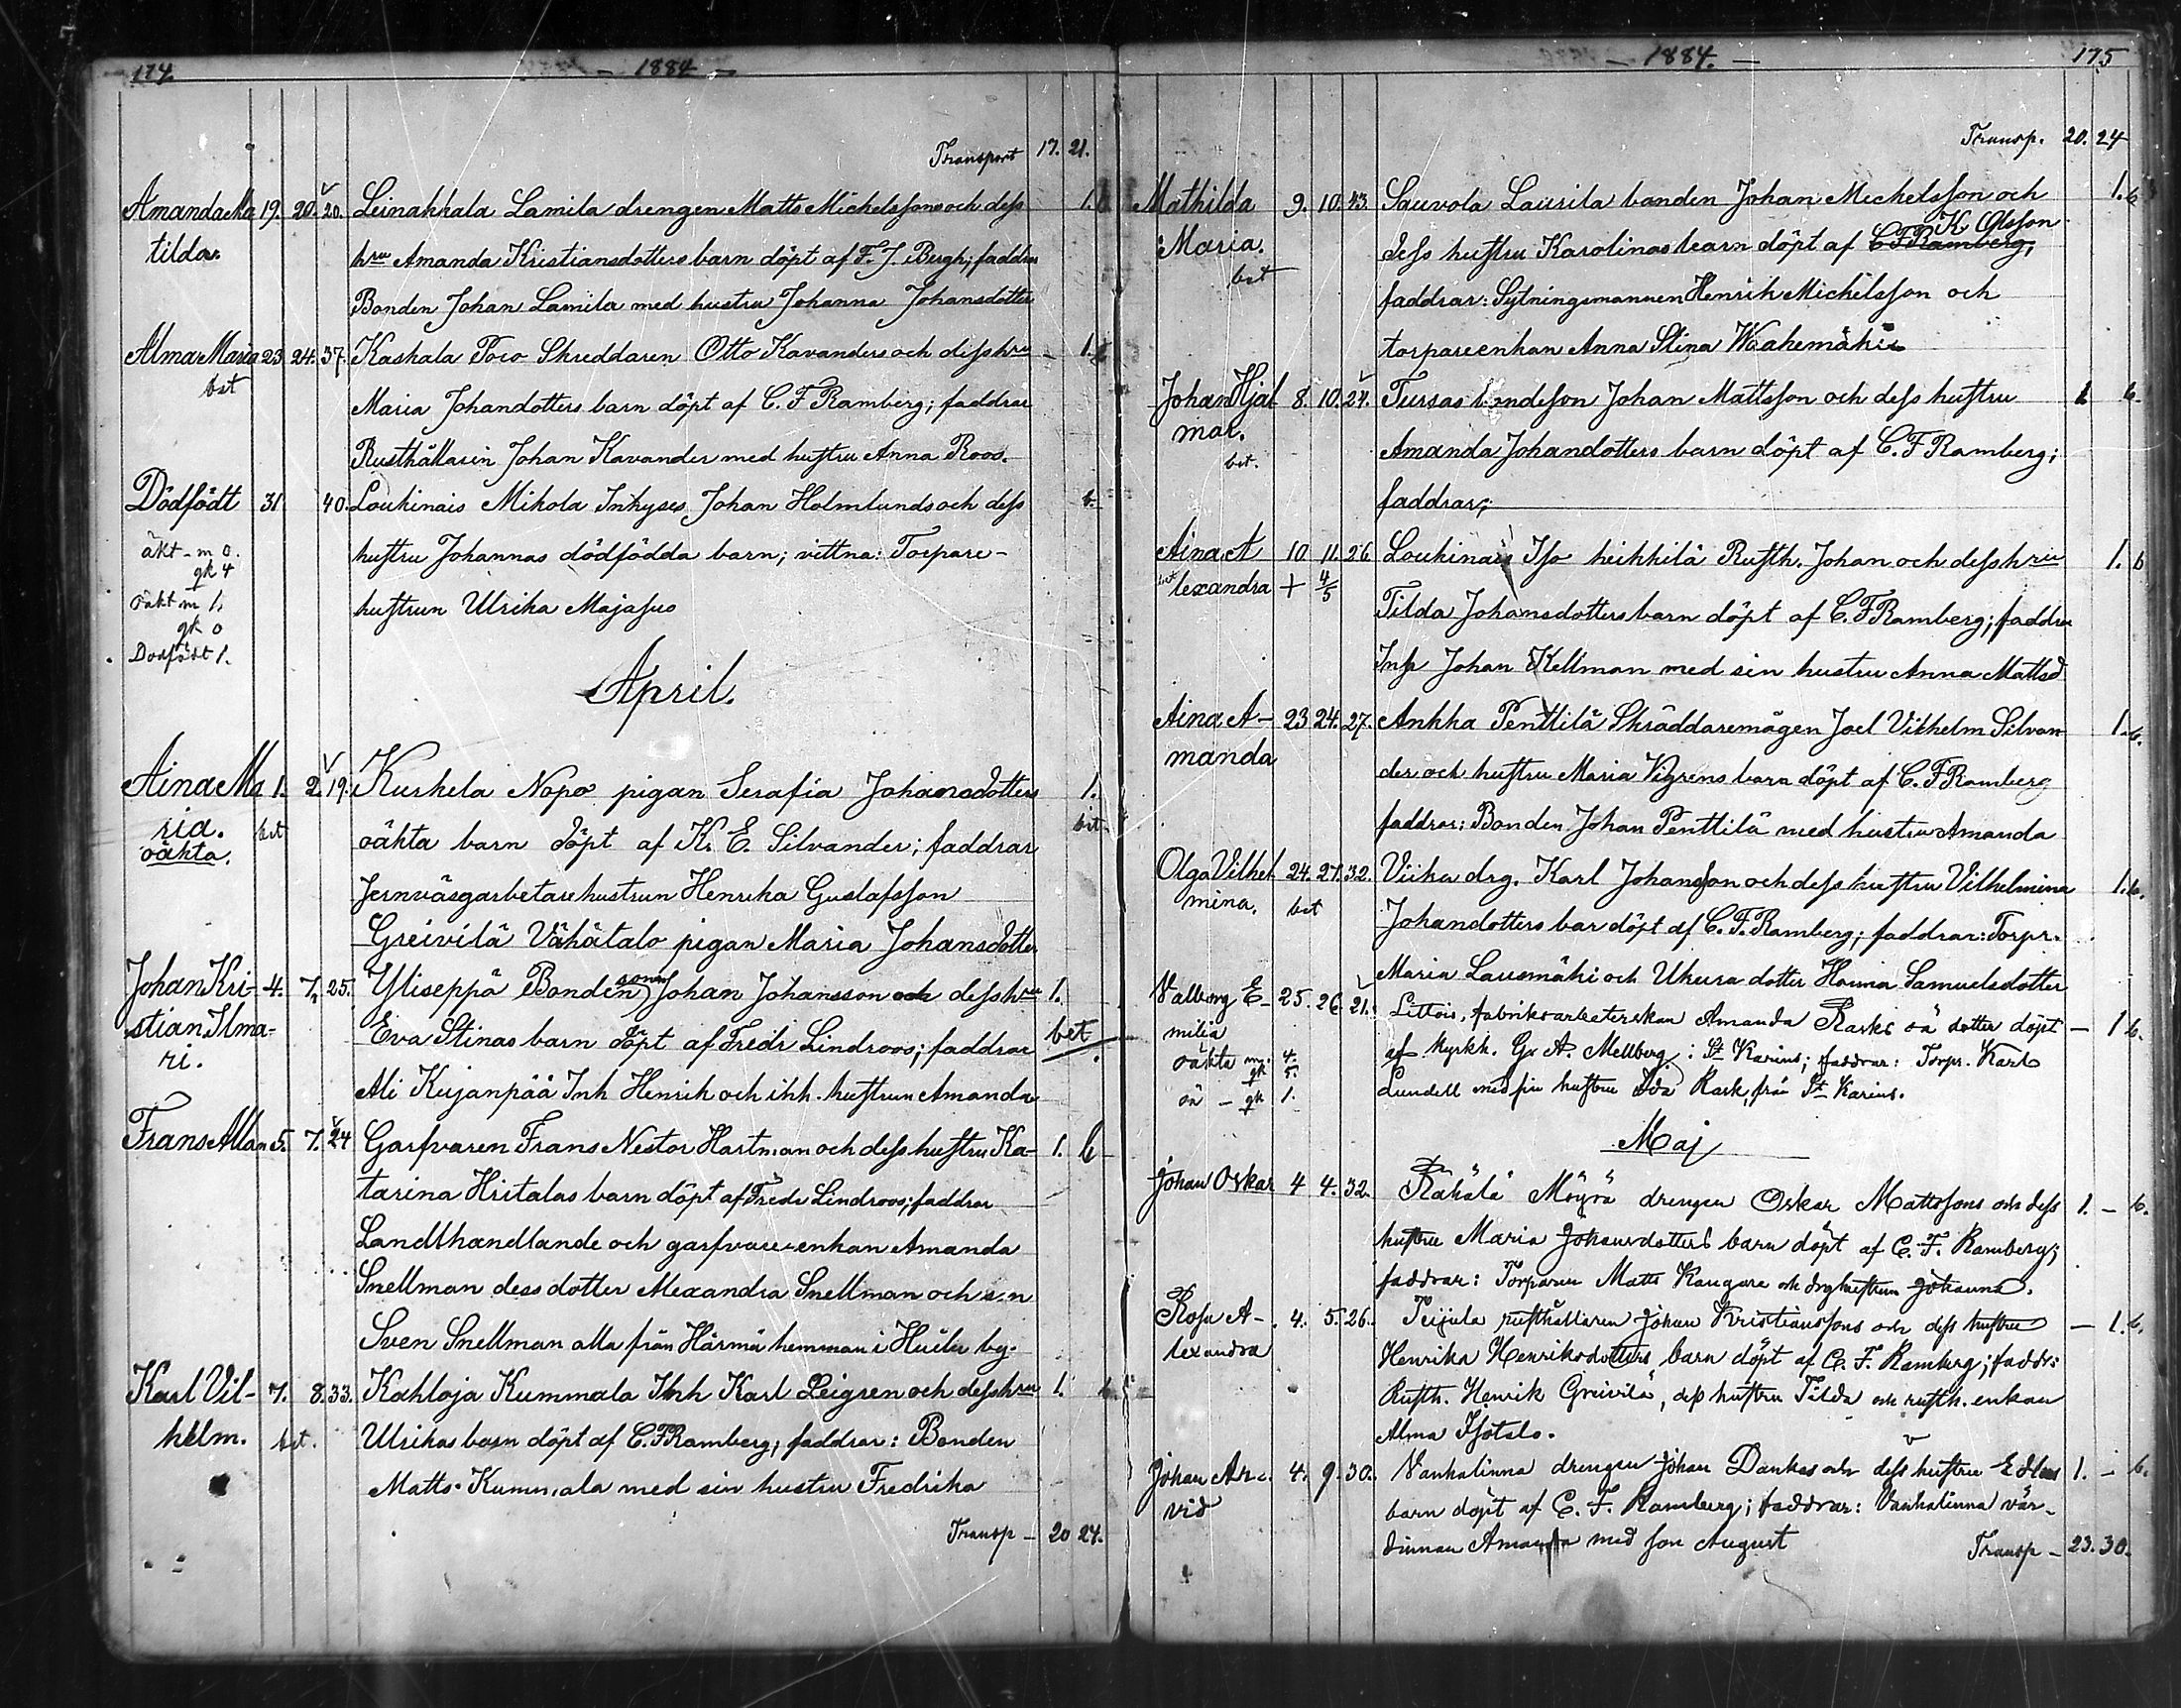 174. - 1884 -
Transport 17. 21.
Amanda Ma 19. 20. 20. Leinakkala Lamila drengen Matts Michelssons och dess 1. b
tilda. hru Amanda Kristiansdotters barn döpt af F. J. Bergh; faddrar
Bonden Johan Lamila med hustru Johanna Johansdotter
Alma Maria 23 24. 37. Kaskala Poco Skreddaren Otto Kavanders och dess hru - 1. b
bet Maria Johandotters barn döpt af C. F Ramberg; faddrar
Rusthållarin Johan Kavander med hustru Anna Roos.
Dödfödt 31 40. Loukinais Mikola Inhyses Johan Holmlunds och dess b.
äkt - m 0. hustru Johannas dödfödda barn; vittna: Torpare-
gk 4
oäkt m 1. hustrun Ulrika Majasuo
gk 0
Dödfödt 1.
April.
Aina Ma 1. 2. 19. Kurkela Nopo pigan Serafia Johansdotters 1.
ria. bet oäkta barn döpt af K. E. Silvander; faddrar bet
oäkta. Jernväsgarbetare hustrun Henrika Gustafsson
Greivilä Vähätalo pigan Maria Johansdotter
Johan Kri- 4. 7. 25. Yliseppä Bonden sonen Johan Johansson och dess hru 1.
stian Ilma- Eva Stinas barn döpt af Fredr Lindroos; faddrar bet
ri. Ali Kujanpää Inh Henrik och ihh. hustrun Amanda
Frans Allan 5. 7. 24 Garfvaren Frans Nestor Hartman och dess hustru Ka- 1. b
tarina Hritalas barn döpt af Fredr Lindroos; faddrar
Landthandlande och garfvare enkan Amanda
Snellman dess dotter Alexandra Snellman och son
Sven Snellman alla från Härmä hemman i by.
Karl Vil- 7. 8. 33. Kahloja Kummala Inh Karl Leigren och dess hru 1. b.
helm. bet. Ulrikas barn döpt af C. F Ramberg; faddrar: Bonden
Matts Kummala med sin hustru Fredrika
Transp - 20 24.
- 1884. - 175
Transp. 20. 24
Mathilda 9. 10. 43. Sauvola Laurila banden Johan Mechelsson och 1. b
K Olsson
Maria. dess hustru Karolinas bearn döpt af C F Ramberg;
bet faddrar: Sytningsmannen Henrik Michelsson och
torpareenkan Anna Stina Waahemäki
Johan Hjal 8. 10. 24. Tursas bondeson Johan Mattsson och dess hustru 1. b.
mar. Amanda Johandotters barn döpt af C. F Ramberg;
bet. faddrar;
Aina A 10 11. 26 Loukinais Iso heikkilä Rusth. Johan och dess hru 1. b
bet lexandra + 4/5 Tilda Johansdotters barn döpt af C. F Ramberg; faddrar
Inh Johan Kellman med sin hustru Anna Mattsd
Aina A- 23 24. 27. Ankka Penttilä Skräddaremågen Joel Vikhelm Silvan 1. b.
manda der och hustru Maria Vigrens barn döpt af C. F Ramberg
faddrar: Bonden Johan Penttilä med hustru Amanda
Olga Vilhel 24. 27. 32. Viika drg. Karl Johansson och dess hustru Vilhelmina 1. b.
mina. bet Johandotters bar döpt af C. F. Ramberg; faddrar: Torpr.
Maria Lausmäki och Ukura dotter Hanna Samuelsdotter
Valborg E- 25. 26. 21. Littois, fabriksarbeterskan Amanda Rasks oä dotter döpt - 1 b.
milia af kyrkh. G. A. Mellberg i St Karins; faddrar: Torpr. Karl
oäkta m. 4. Lundell med sin hustru Ida Rask, från St Karins.
gk 5.
oä - gk 1.
Maj
Johan Oskar 4 4. 32. Rähälä Möyrä drengen Oskar Mattssons och dess 1. - b.
hustru Maria Johansdotters barn döpt af C. F. Ramberg;
faddrar: Torparen Matts Kangare och drghustrun Johanna.
Rosa A- 4. 5. 26. Teijula rusthållaren Johan Kristianssons och dess hustru - 1. b.
lexandra Henrika Henriksdotters barn döpt af C. F. Ramberg; faddr:
Rusth. Henrik Greivilä, dess hustru Tilda och rusth. enkan
Alma Isotalo.
Johan Ar- 4. 9. 30. Vanhalinna drengen Johan Dankas och dess hustru Eddas 1. - b.
vid barn döpt af C. F. Ramberg; faddrar: Vanhalinna vär-
dinnan Amanda med son August Transp - 23. 30.